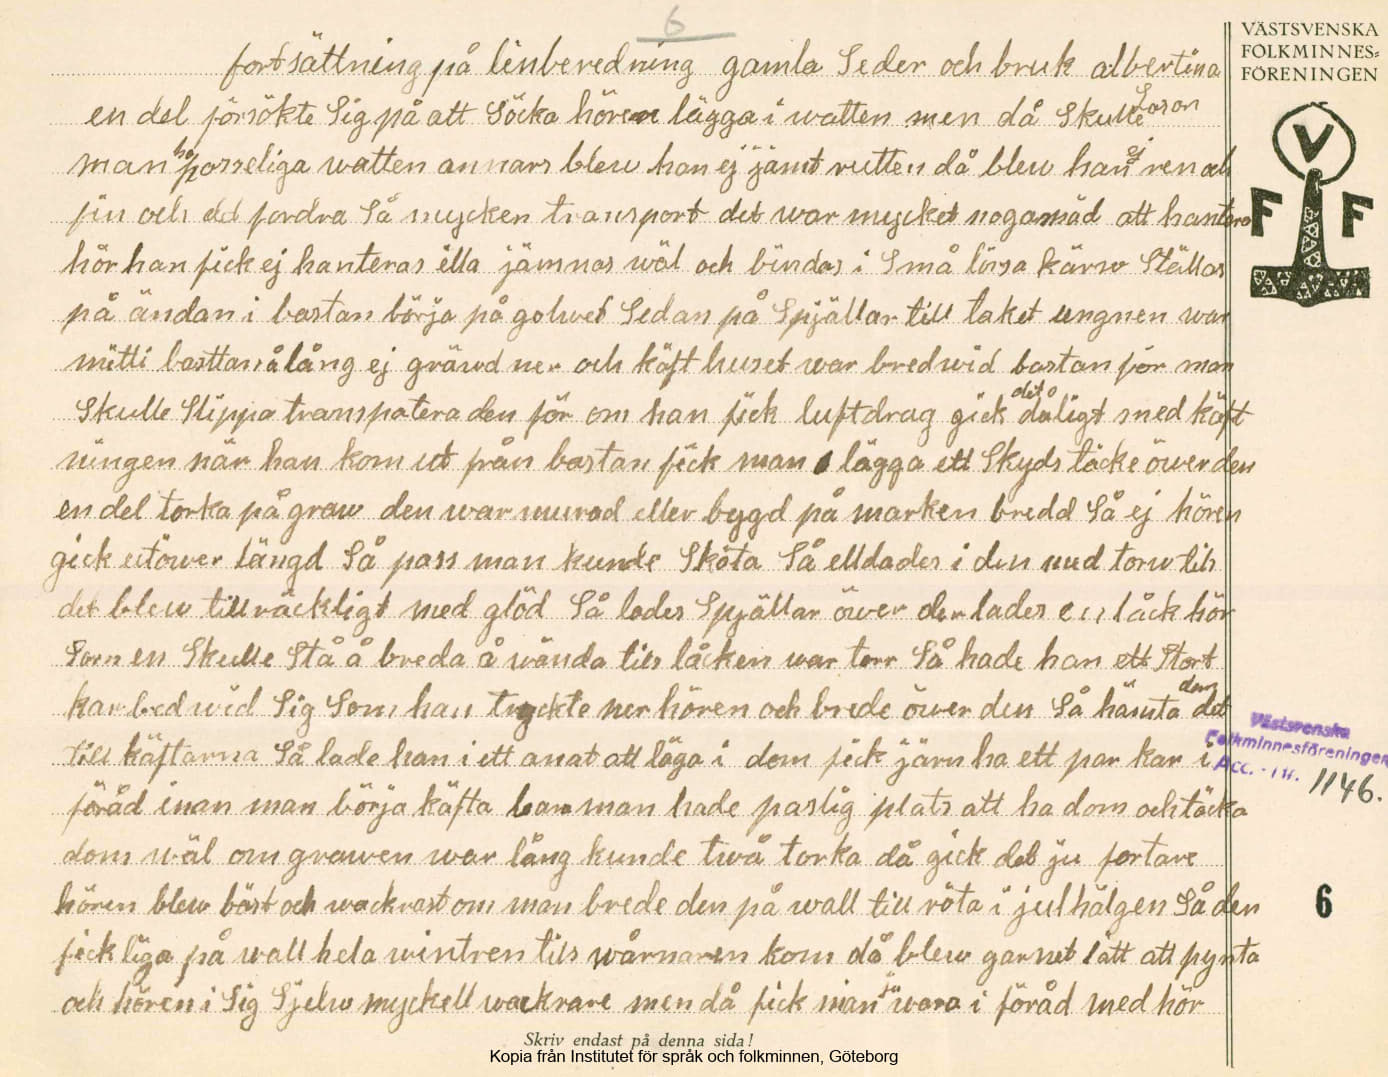 6
VÄSTSVENSKA
FOLKMINNES=
FÖRENINGEN
fortsättning på linberedning gamla Seder och bruk albertina
Lason
en del försökte Sig på att Söcka hören lägga i watten men då Skulle
man ha porseliga watten annars blew han ej jämt rutten då blew han ej ren och
fin och det fordra Så mycken transport det war mycket nogamäd att hantera
hör han fick ej hanteras illa jämnas wäl och bindas i Små lösa kärw Ställas
på ändan i bastan börja på golwet Sedan på Spjällar till taket ungnen war
mitti basttan å lång ej gräwd ner och käft huset war bredwid bastan för man
Skulle Slippa transpatera den för om han fick luftdrag gick det dåligt med käft
ningen när han kom ut från bastan fick man lägga ett Skyds täcke öwer den
en del torka på graw den war murad eller bygd på marken bredd Så ej hören
gick utöwer längd Så pass man kunde Sköta Så elldades i den med torw tils
det blew tillräckligt med glöd Så lades Spjällar öwer der lades en låck hör
Som en Skulle Stå å breda å wända tils låcken war torr Så hade han ett Stort
kar bredwid Sig Som han tryckte ner hören och brede öwer den Så hämta dom det
till käftarna Så lade han i ett anat att läga i dom fick järn ha ett par kar i
föråd inan man börja käfta bara man hade paslig plats att ha dom och täcka
dom wäl om grawen war lång kunde twå torka då gick det ju fortare
hören blew bäst och wackrast om man brede den på wall till röta i julhälgen Så den
fick liga på wall hela wintren tils wårnaren kom då blew garnet lätt att pynta
och hören i Sig Sjelw myckell wackrare men då fick man ju wara i föråd med hör
V
F F
Västsvenska
Folkminnesföreningen
Acc. - nr. 1146.
6
Skriv endast på denna sida!
Kopia från Institutet för språk och folkminnen, Göteborg